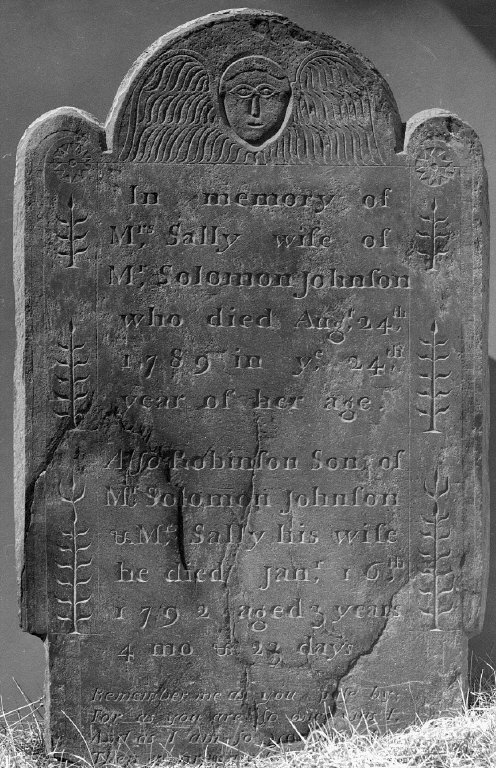 In memory of
Mrs. Sally wife of
Mr. Solomon Johnſon
who died Augt. 24th,
1789 in ye. 24th.
year of her age.
Alſo Robinſon Son, of
Mr. Solomon Johnſon
& Mrs. Sally his wife
he died Janr. 16th
1792 aged 3 years
4 mo & 23 days
Remember me as you by.
For as you are ſo I
And as I am ſo